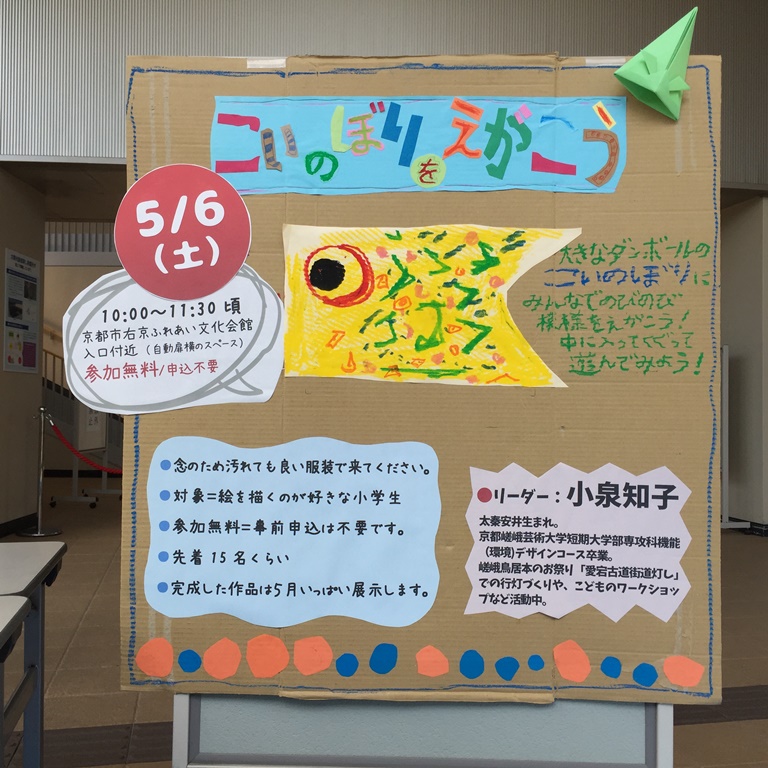 こいのぼりをえがこう
5/6
(土)
10:00〜11:30 頃
京都市右京ふれあい文化会館
入口付近（自動扉横のスペース）
参加無料/申込不要
大きなダンボールの
こいのぼりに
みんなでのびのび
模様をえがこう！
中に入ってくぐって
遊んでみよう！
●念のため汚れても良い服装で来てください。
●対象=絵を描くのが好きな小学生
●参加無料=事前申込は不要です。
●先着15名くらい
●完成した作品は5月いっぱい展示します。
●リーダー：小泉知子
太秦安井生まれ。
京都嵯峨芸術大学短期大学部専攻科機能
（環境)デザインコース卒業。
嵯峨鳥居本のお祭り「愛宕古道街道灯し」
での行灯づくりや、こどものワークショッ
プなど活動中。